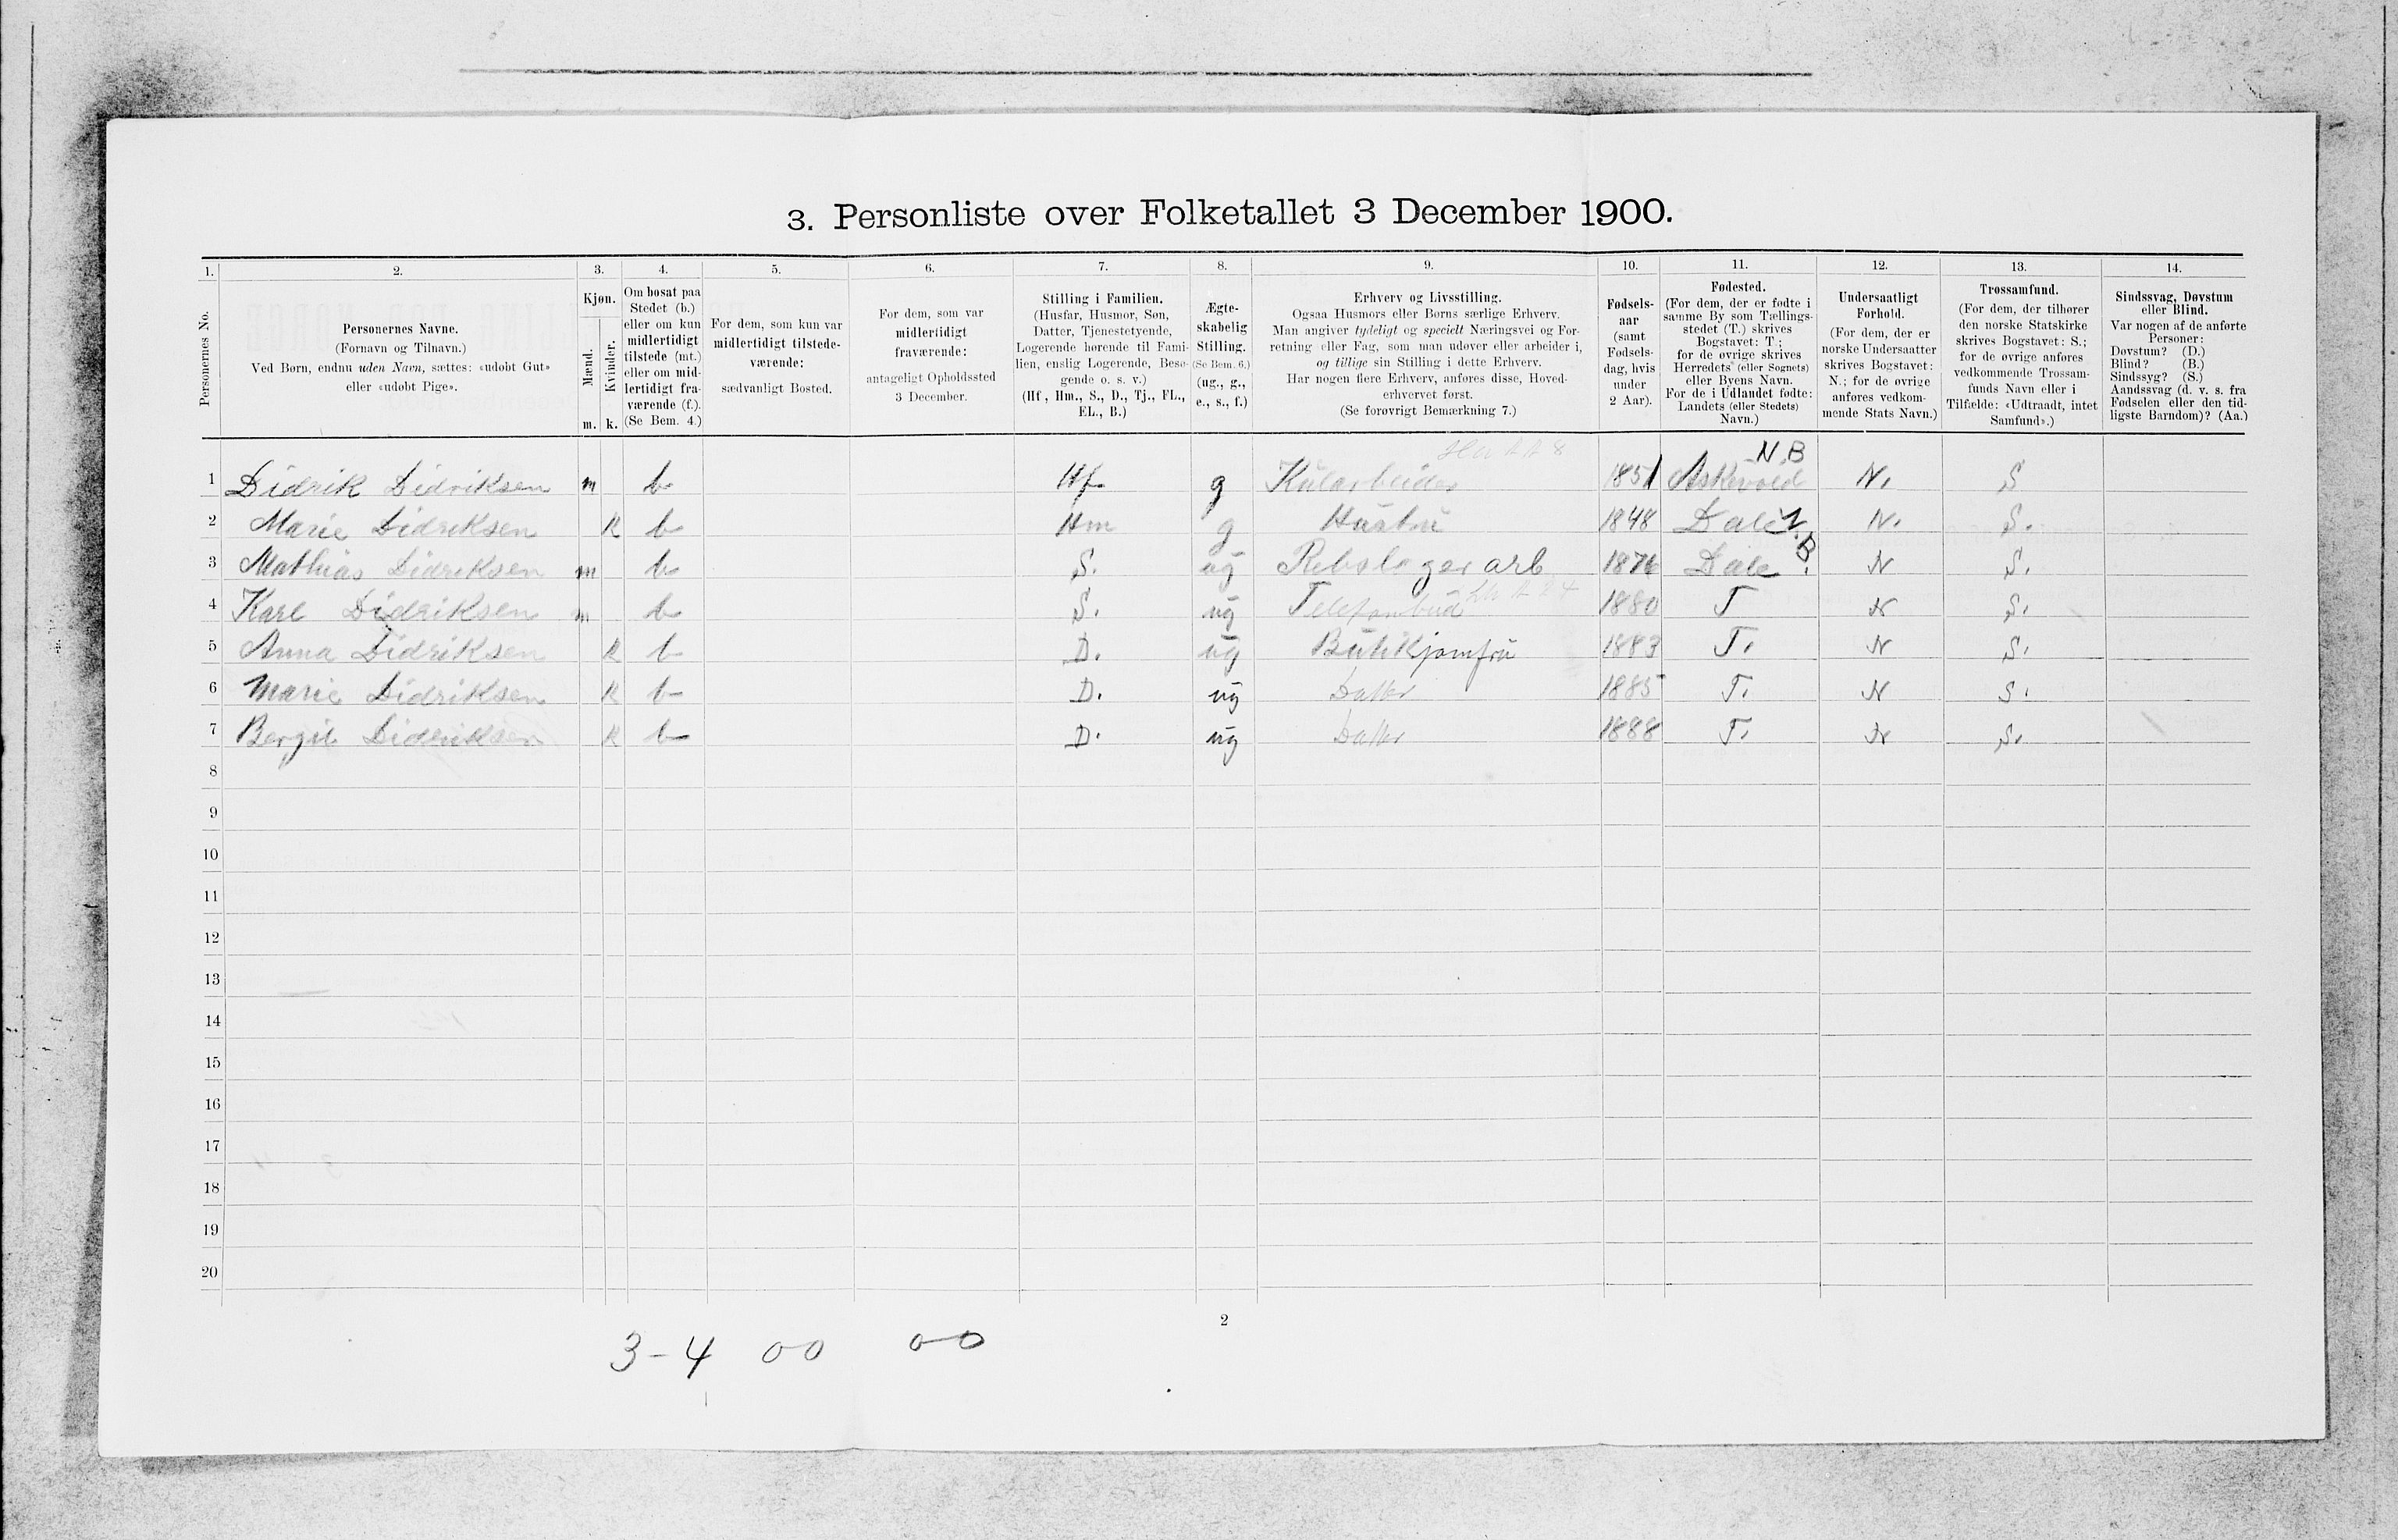 3. Personliste over Folketallet 3 December 1900.
1. 2. 3. 4. 5. 6. 7. 8. 9. 10. 11. 12. 13. 14.
Personernes No.
Personernes Navne.
(Fornavn og Tilnavn.)
Ved Børn, endnu uden Navn, sættes: «udøbt Gut»
eller «udøbt Pige».
Kjøn.
Mænd.
Kvinder.
m. k.
Om bosat paa
Stedet (b.)
eller om kun
midlertidigt
tilstede (mt.)
eller om mid-
lertidigt fra-
værende (f.).
(Se Bem. 4.)
For dem, som kun var
midlertidigt tilstede-
værende:
sædvanligt Bosted.
For dem, som var
midlertidigt
fraværende:
antageligt Opholdssted
3 December.
Stilling i Familien.
(Husfar, Husmor, Søn,
Datter, Tjenestetyende,
Logerende hørende til Fami-
lien, enslig Logerende, Besø-
gende o. s. v.)
(Hf, Hm., S., D., Tj., FL.,
EL., B.)
Ægte-
skabelig
Stilling.
(Se Bem. 6.)
(ug., g.,
e., s., f.)
Erhverv og Livsstilling.
Ogsaa Husmors eller Børns særlige Erhverv.
Man angiver tydeligt og specielt Næringsvei og For-
retning eller Fag, som man udøver eller arbeider i,
og tillige sin Stilling i dette Erhverv.
Har nogen flere Erhverv, anføres disse, Hoved-
erhvervet først.
(Se forøvrigt Bemærkning 7.)
Fødsels-
aar
(samt
Fødsels-
dag, hvis
under
2 Aar).
Fødested.
(For dem, der er fødte i
samme By som Tællings-
stedet (T.) skrives
Bogstavet: T.;
for de øvrige skrives
Herredets (eller Sognets)
eller Byens Navn.
For de i Udlandet fødte:
Landets (eller Stedets)
Navn.)
Undersaatligt
Forhold.
(For dem, der er
norske Undersaatter
skrives Bogstavet:
N.; for de øvrige
anføres vedkom-
mende Stats Navn.)
Trossamfund.
(For dem, der tilhører
den norske Statskirke
skrives Bogstavet: S.;
for de øvrige anføres
vedkommende Trossam-
funds Navn eller i
Tilfælde: «Udtraadt, intet
Samfund».)
Sindssvag, Døvstum
eller Blind.
Var nogen af de anførte
Personer:
Døvstum? (D.)
Blind? (B.)
Sindssyg? (S.)
Aandssvag (d. v. s. fra
Fødselen eller den tid-
ligste Barndom)? (Aa.)
N.B
1 Didrik Didriksen m b Hf g Kularbeider 1851 Askevold N. S
2 Marie Didriksen k b Hm g Hustru 1848 Dale N.B. N. S.
3 Mathias Didriksen m b S. ug Rebslager arb 1876 Dale N S.
4 Karl Didriksen m b S. ug Telefonbud 1880 T N S.
5 Anna Didriksen k b D. ug Butikjomfru 1883 T. N S.
6 Marie Didriksen k b D. ug Datter 1885 T. N S.
7 Bergit Didriksen k b D. ug Datter 1888 T. N S.
8
9
10
11
12
13
14
15
16
17
18
19
20
2
3-4 00 00